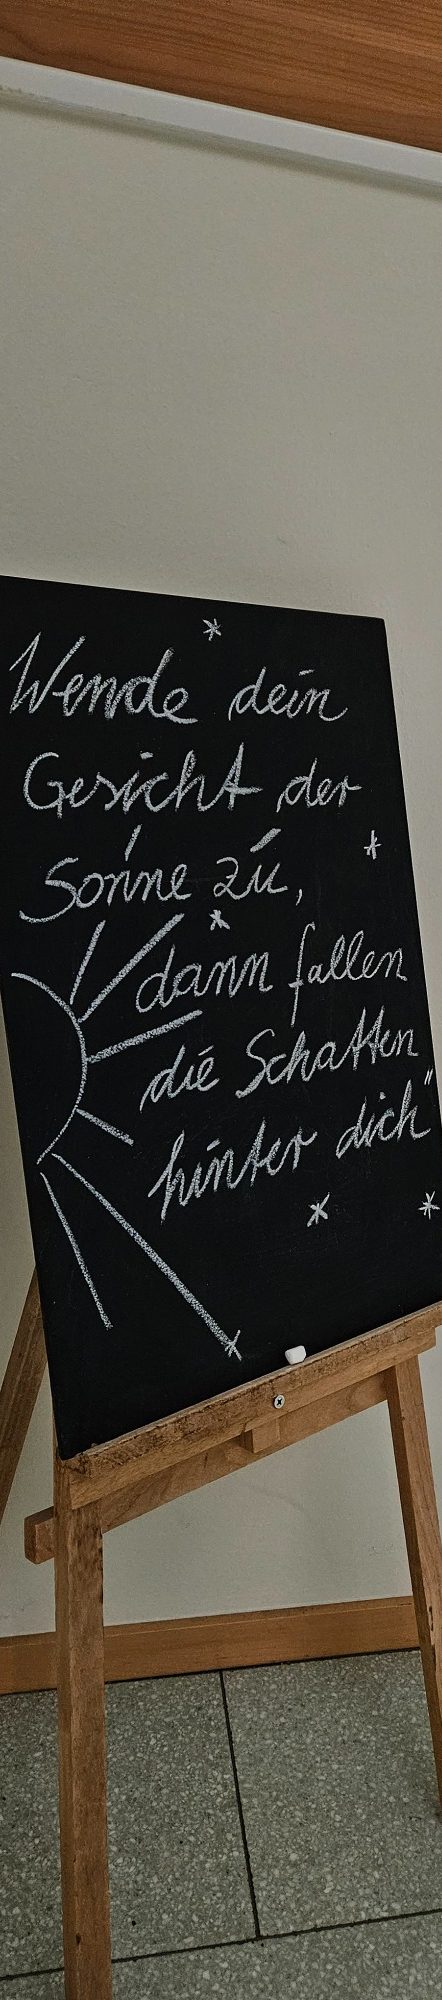 Wende dein
Gesicht der
Sonne zu,
dann fallen
die Schatten
hinter dich"